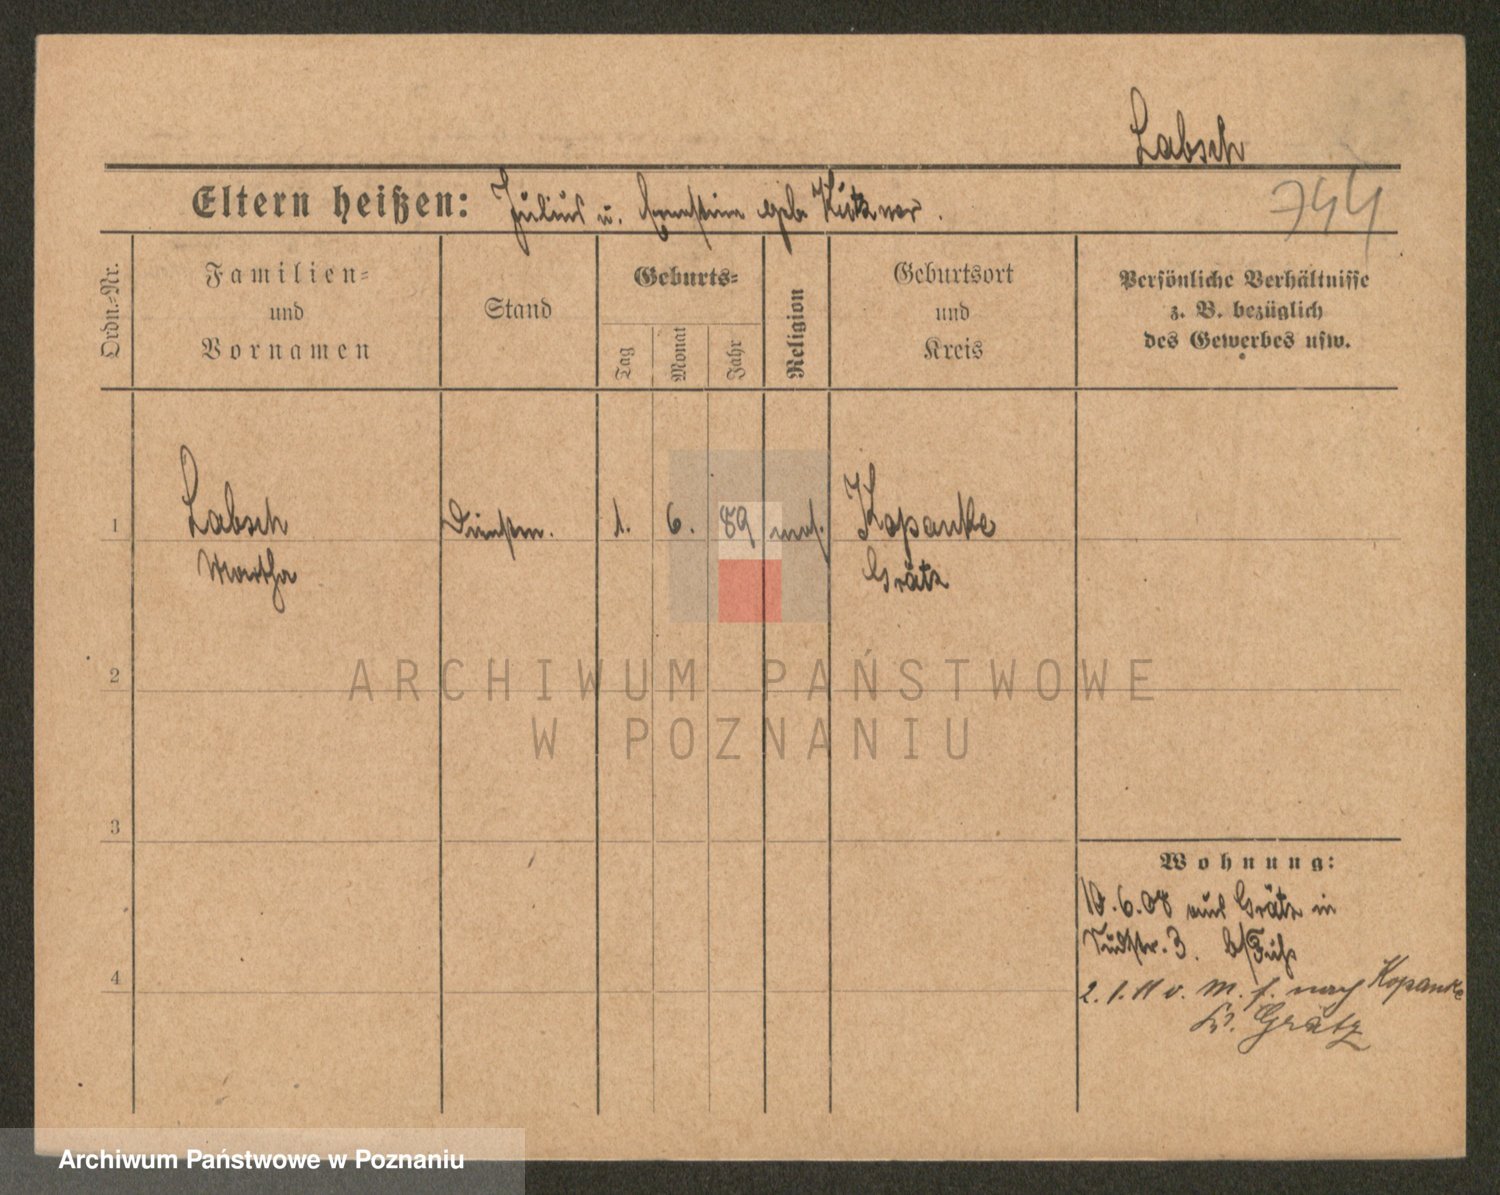 Labsch
744
Eltern heißen: Julius u. Ernestine geb. Kützner.
Ordn.-Nr.
Familien-
und
Vornamen
Stand
Geburts-
Tag
Monat
Jahr
Religion
Geburtsort
und
Kreis
Persönliche Verhältnisse
z. B. bezüglich
des Gewerbes usw.
1
Labsch
Martha
Dienstm.
1.
6.
89
Kopanke
Grätz
2
ARCHIWUM PAŃSTWOWE
W POZNANIU
3
4
Wohnung:
10.6.08 aus Grätz in
Südstr. 3. b/
2.1.11 v. M. f. nach Kopanke
Kr. Grätz
Archiwum Państwowe w Poznaniu